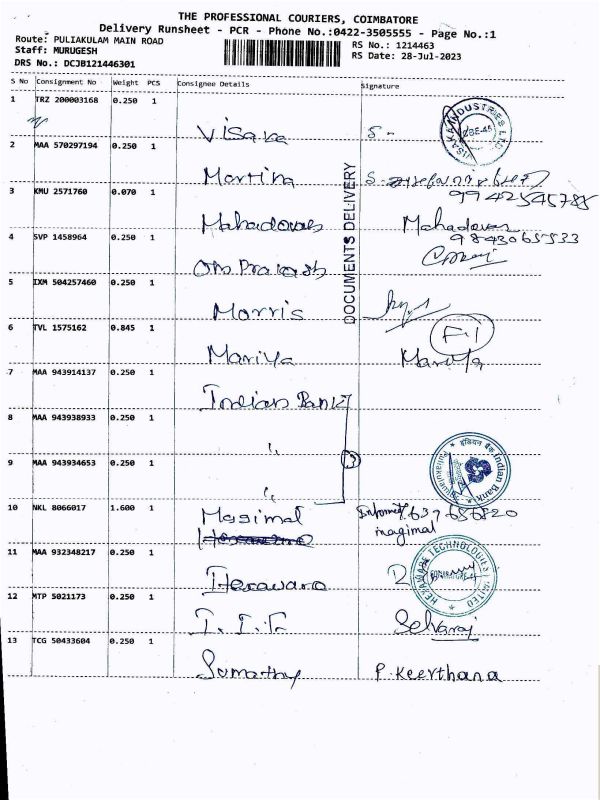 THE PROFESSIONAL COURIERS, COIMBATORE
Delivery Runsheet - PCR - Phone No.:0422-3505555 - Page No.:1
Route: PULIAKULAM MAIN ROAD
RS No.: 1214463
Staff: MURUGESH
RS Date: 28-Jul-2023
DRS No.: DCJB121446301
S No Consignment No Weight PCS Consignee Details Signature
1 TRZ 200003168 0.250 1
Visaka S-
2 MAA 570297194 0.250 1
Martina
9942545785
3 KMU 2571760 0.070 1
Mahadevan Mahadevan
9843065533
4 SVP 1458964 0.250 1
Om Prakash
5 IXM 504257460 0.250 1
Morris
6 TVL 1575162 0.845 1
F.1
Mariya Mariya
7 MAA 943914137 0.250 1
Indian Bank
8 MAA 943938933 0.250 1
"
9 MAA 943934653 0.250 1
3
"
10 NKL 8066017 1.600 1
Magimal
magimal
11 MAA 932348217 0.250 1
Hexaware
12 MTP 5021173 0.250 1
Selvaraj
13 TCG 50433604 0.250 1
Sumathy P. Keerthana
DOCUMENTS DELIVERY
VISAKA INDUSTRIES LTD
CBE-45
इंडियन बैंक Indian Bank
HEXAWARE TECHNOLOGIES LIMITED